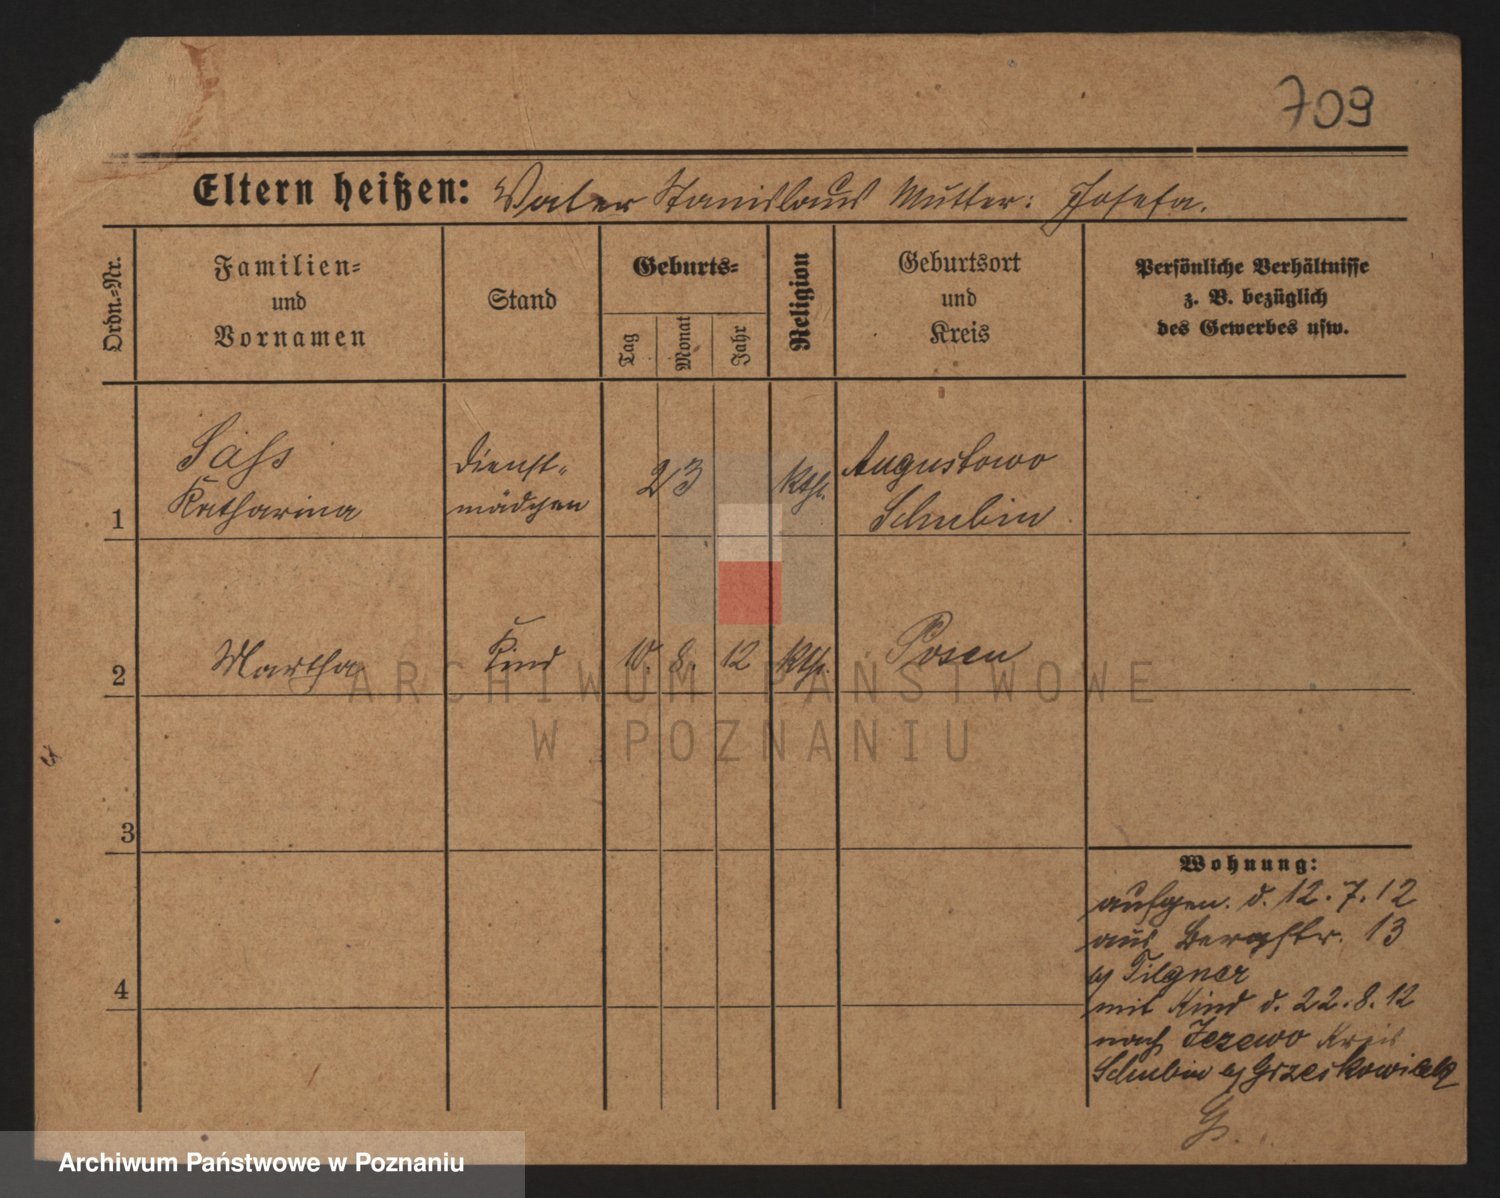 709
Eltern heißen: Vater Stanislaus Mutter: Josefa.
Ordn.-Nr.
Familien-
und
Vornamen
Stand
Geburts-
Tag
Monat
Jahr
Religion
Geburtsort
und
Kreis
Persönliche Verhältnisse
z. B. bezüglich
des Gewerbes usw.
1
Sass
Katharina
Dienst-
mädchen
23
kth.
Augustowo
Schubin
2
Martha
Kind
10. 8. 12
kth.
Posen
3
4
Wohnung:
aufgen. d. 12.7.12
aus Bergstr. 13
b/ Tilgner
mit Kind d. 22.8.12
nach Jezewo Kreis
Schubin b/ Grzeskowiak
G.
ARCHIWUM PAŃSTWOWE
W POZNANIU
Archiwum Państwowe w Poznaniu